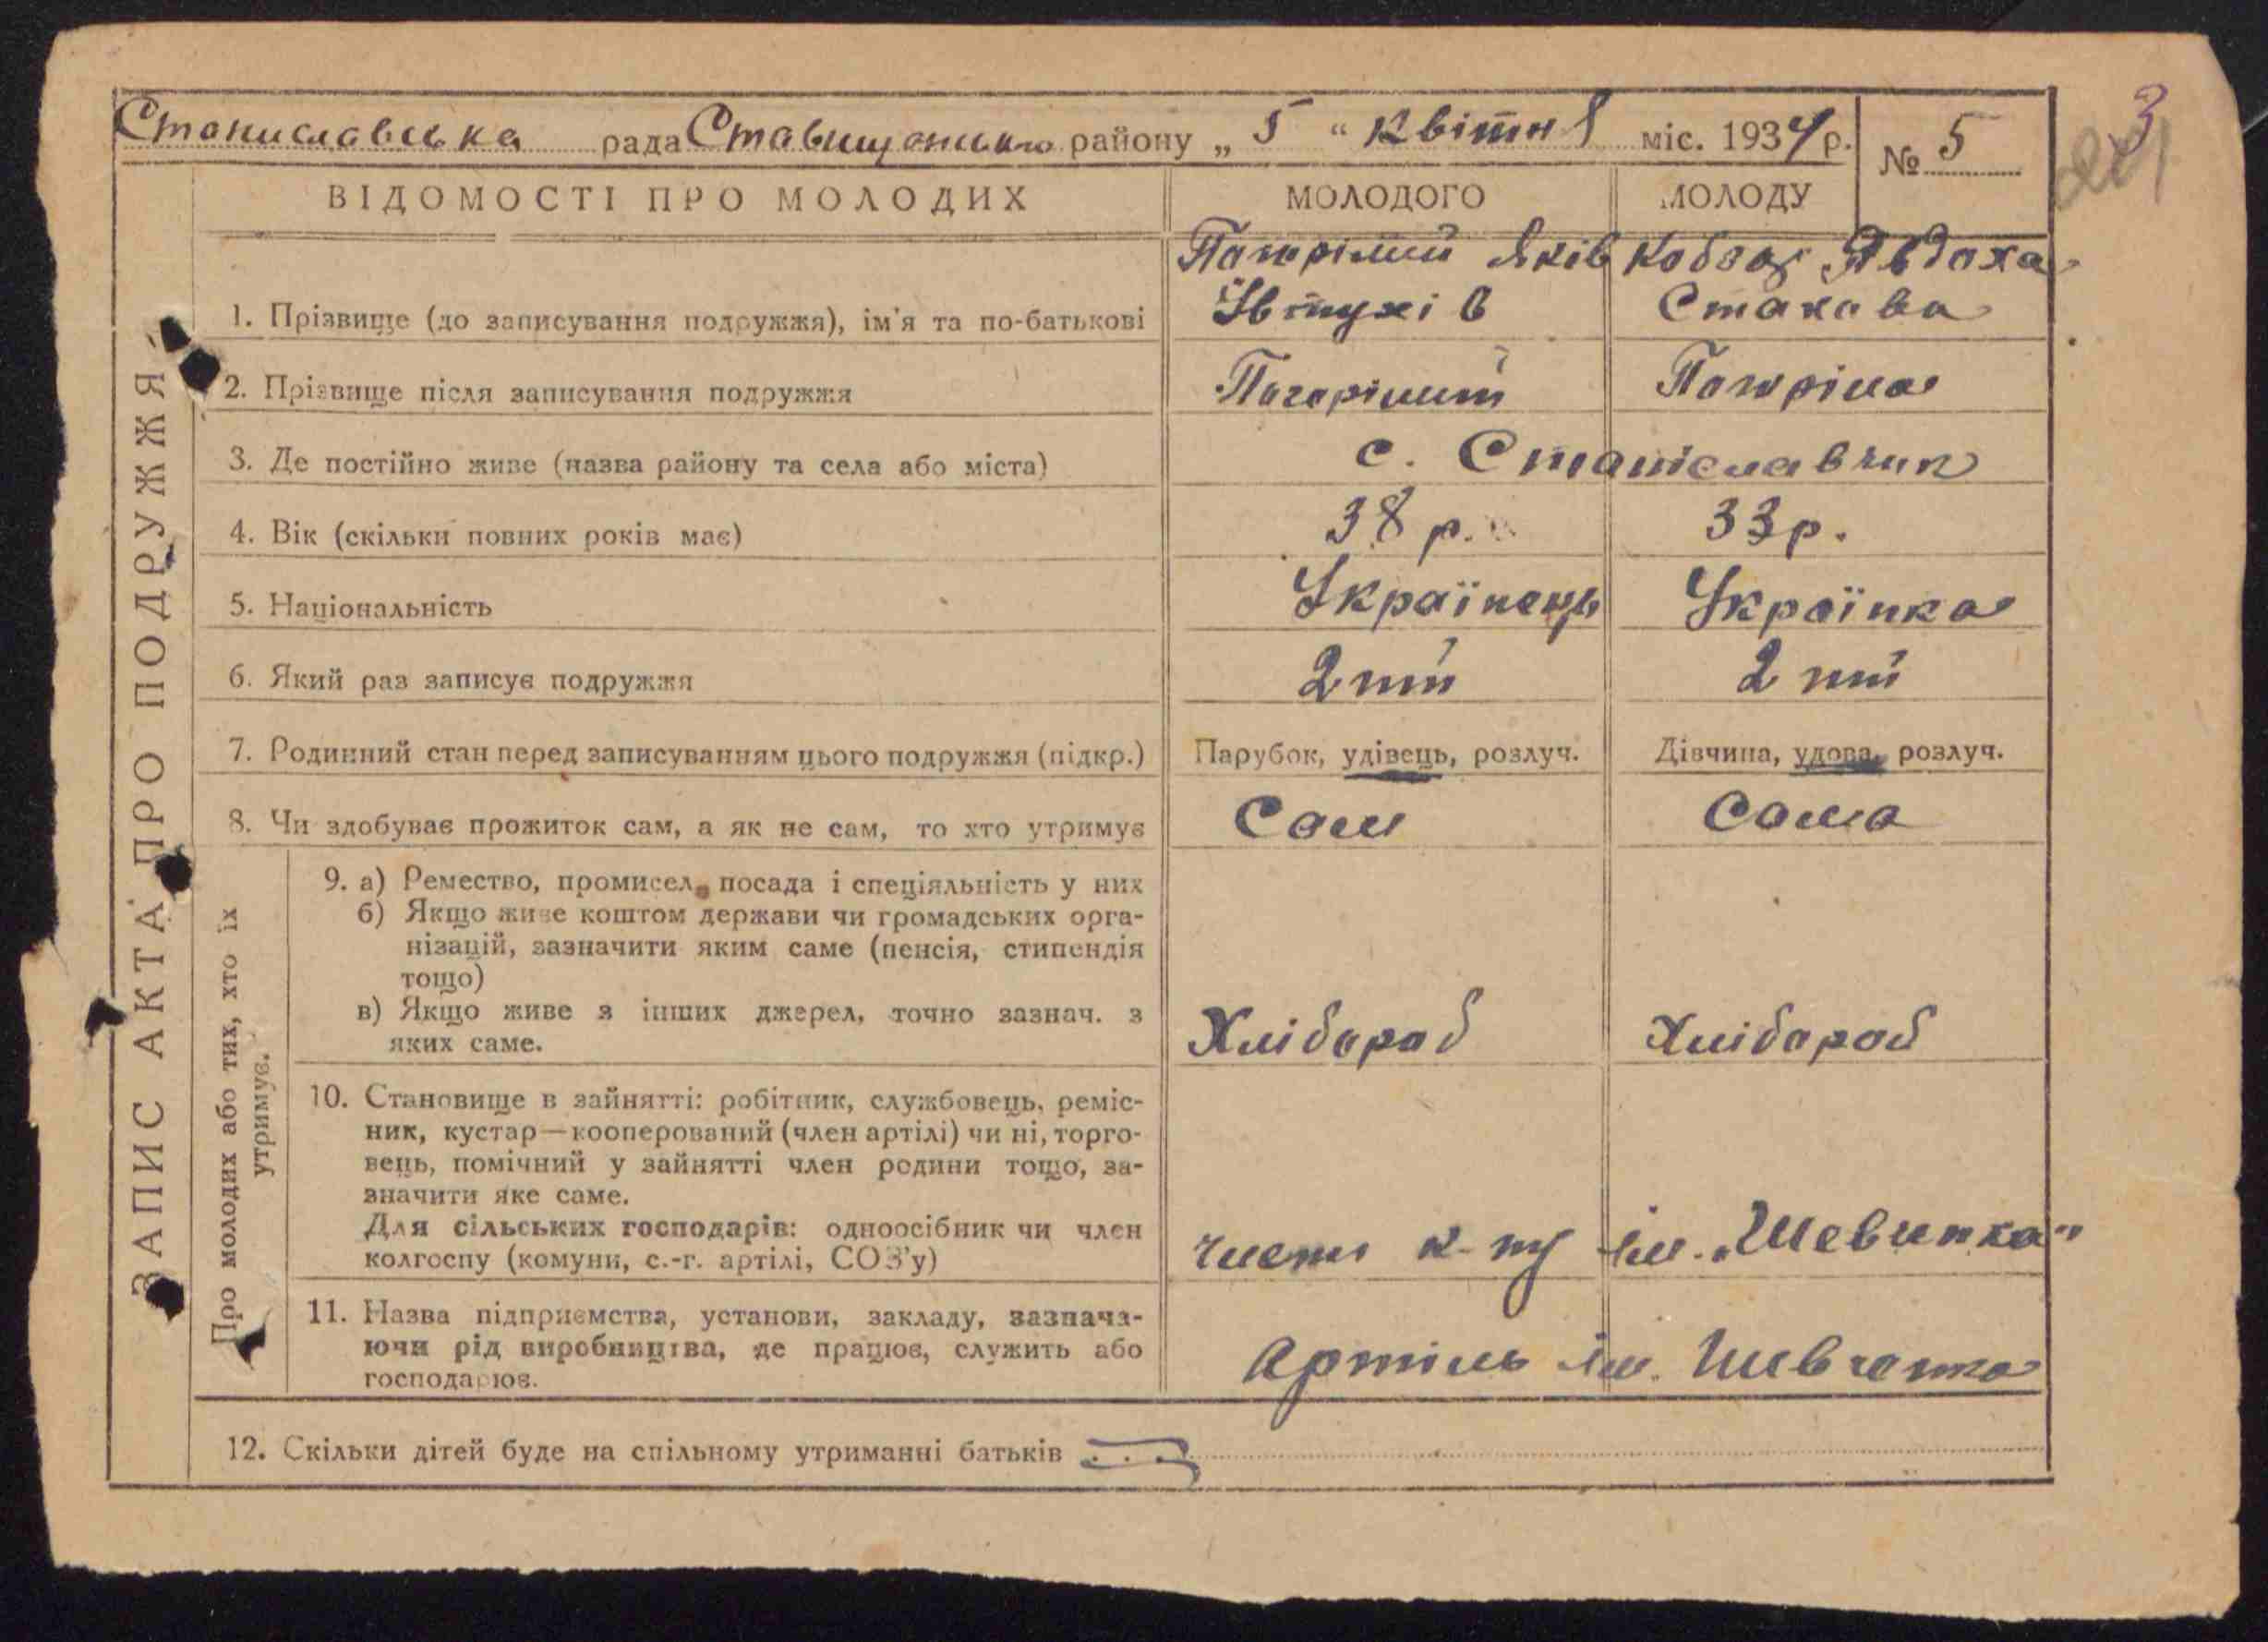 Станиславська рада Ставищанського району „ 5 “ Квітня міс. 1934 р.
№ 5
3
ВІДОМОСТІ ПРО МОЛОДИХ
МОЛОДОГО
МОЛОДУ
ЗАПИС АКТА ПРО ПОДРУЖЖЯ
1. Прізвище (до записування подружжя), ім'я та по-батькові
Погорілий Яків
Явтухів
Кобзар Явдоха
Стахова
2. Прізвище після записування подружжя
Погорілий
Погоріла
3. Де постійно живе (назва району та села або міста)
с. Станіславчик
4. Вік (скільки повних років має)
38 р.
33 р.
5. Національність
Українець
Українка
6. Який раз записує подружжя
2 тий
2 тий
7. Родинний стан перед записуванням цього подружжя (підкр.)
Парубок, удівець, розлуч.
Дівчина, удова, розлуч.
8. Чи здобуває прожиток сам, а як не сам, то хто утримує
Сам
Сама
Про молодих або тих, хто їх
утримує.
9. а) Ремество, промисел, посада і спеціяльність у них
б) Якщо живе коштом держави чи громадських орга-
нізацій, зазначити яким саме (пенсія, стипендія
тощо)
в) Якщо живе з інших джерел, точно зазнач. з
яких саме.
Хлібороб
Хлібороб
10. Становище в зайнятті: робітник, службовець, реміс-
ник, кустар—кооперований (член артілі) чи ні, торго-
вець, помічний у зайнятті член родини тощо, за-
значити яке саме.
Для сільських господарів: одноосібник чи член
колгоспу (комуни, с.-г. артілі, СОЗ'у)
члени к-пу ім. „Шевченка"
11. Назва підприємства, установи, закладу, зазнача-
ючи рід виробництва, де працює, служить або
господарює.
Артіль ім. Шевченка
12. Скільки дітей буде на спільному утриманні батьків